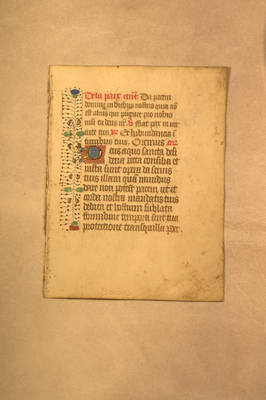 De la paix ant̄. Da pacem
domine in diebus nostris quia nō
est alius qui pugnet pro nobis
nisi tu deus nr̄. V. Fiat pax in uir
tute tua. R. Et habundancia ī
turribus tuis. Oremus
Deus a quo sancta desi
deria recta consilia et
iusta sunt opera da seruis
tuis illam quam mundus
dare non potest pacem ut et
corda nostra mandatis tuis
dedita et hostium sublata
formidine tempora sint tua
protectione tranquilla Per.